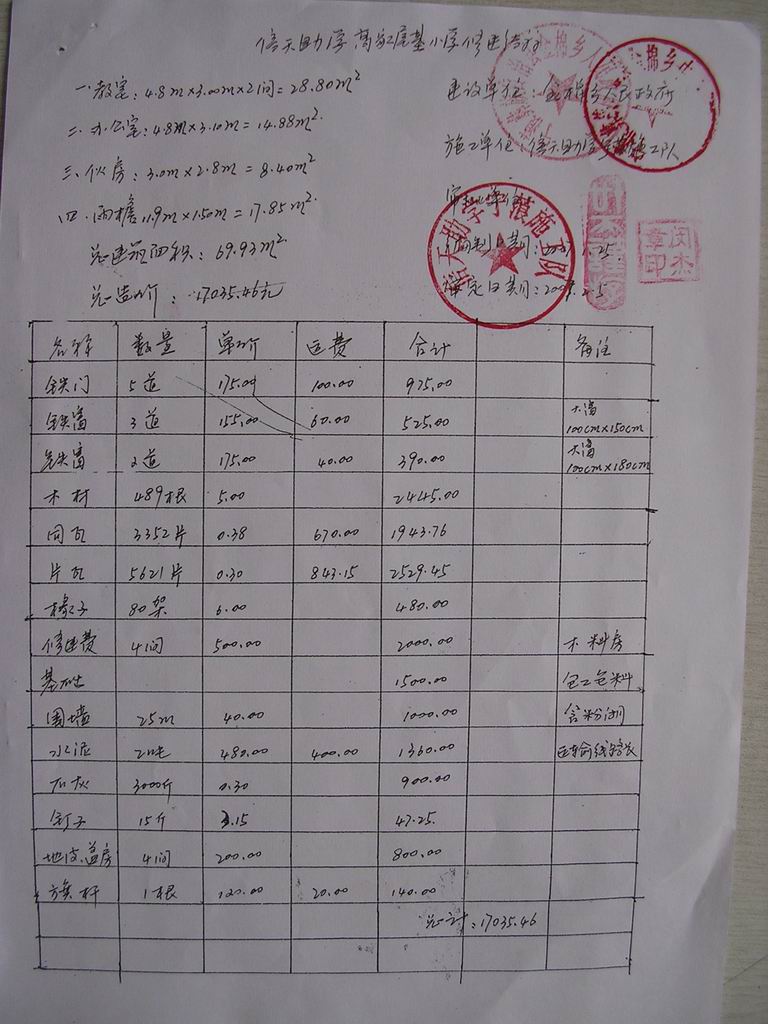 倍天助学高红屋基小学修建结算
一.教室:4.8m×3.00m×2间=28.80m²
二.办公室:4.8m×3.10m=14.88m²
三.伙房:3.0m×2.8m=8.40m²
四.雨檐11.9m×1.50m=17.85m²
总建筑面积:69.93m²
总造价:17035.46元
建设单位:金棉乡人民政府
施工单位:倍天助学学校施工队
审批单位
编制日期:
审定日期:
闵杰
章印
名称 数量 单价 运费 合计 备注
铁门 5道 175.00 100.00 975.00
铁窗 3道 155.00 60.00 525.00 大窗 100cm×150cm
铁窗 2道 175.00 40.00 390.00 大窗 100cm×180cm
木材 489根 5.00 2445.00
同瓦 3352片 0.38 670.00 1943.76
片瓦 5621片 0.30 843.15 2529.45
椽子 80架 6.00 480.00
修建费 4间 500.00 2000.00 木料房
基础 1500.00 包工包料
围墙 25m 40.00 1000.00 含粉刷
水泥 2吨 480.00 400.00 1360.00 运输线路长
石灰 3000斤 0.30 900.00
钉子 15斤 3.15 47.25
地皮.盖房 4间 200.00 800.00
旗杆 1根 120.00 20.00 140.00
总计:17035.46